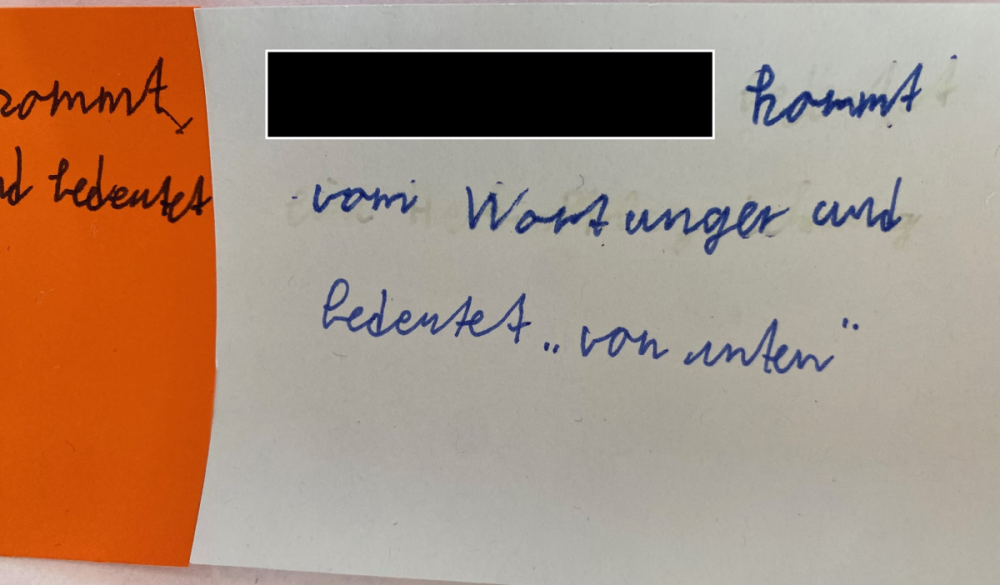 kommt
vom Wort unger und
bedeutet „von unten“
kommt
nd bedeutet